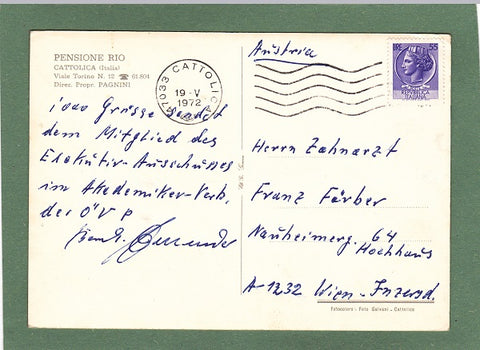 PENSIONE RIO
CATTOLICA (Italia)
Viale Torino N. 12 ☎ 61-804
Direz. Propr. PAGNINI
1000 Grüsse sendet
dem Mitglied des
Exekutiv-Ausschusses
im Akademiker-Verb.
der ÖVP
Austria
47033 CATTOLICA
19-V
1972
LIRE 55
Herrn Zahnarzt
Franz Färber
Nauheimerg. 64
Hochhaus
A-1232 Wien-Inzersd.
Fotocolore - Foto Galvani - Cattolica